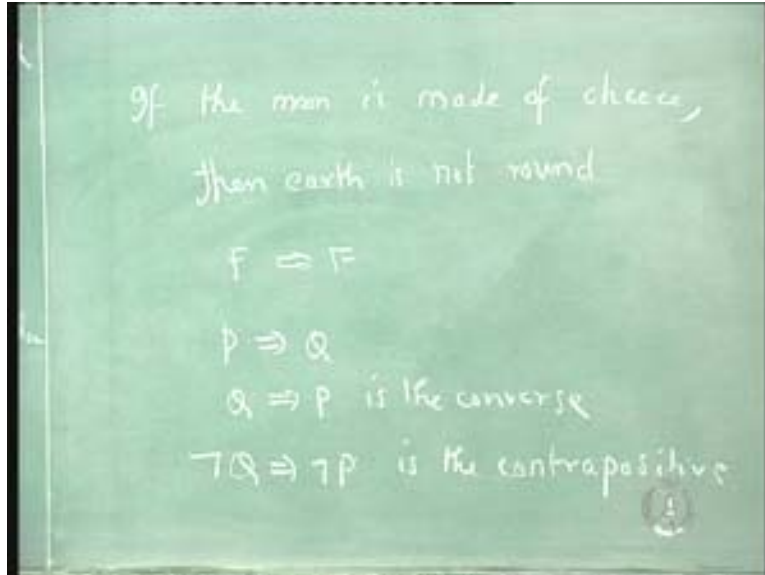 If the moon is made of cheese,
then earth is not round
F ⇒ F
P ⇒ Q
Q ⇒ P is the converse
¬Q ⇒ ¬P is the contrapositive